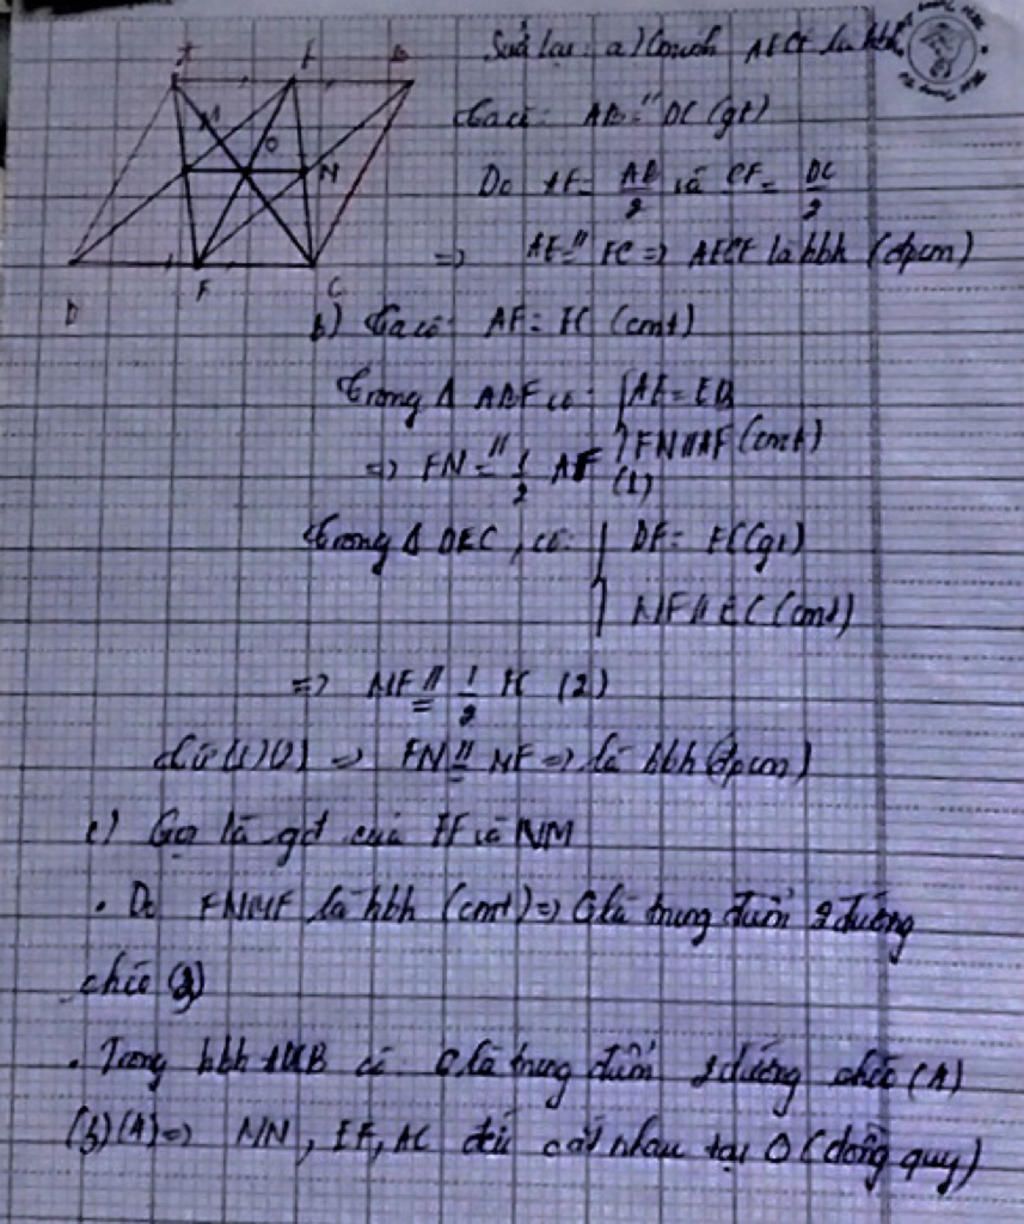 A E B
M
O
N
D F C
Sửa lại: a) Cminh AECF là hbh
Ta có: AB =// DC (gt)
Do AE = AB/2 và CF = DC/2
=> AE =// FC => AECF là hbh (đpcm)
b) Ta có: AF = EC (cmt)
Trong Δ ABF có: { AE = EB
EN // AF (cmt)
=> EN =// 1/2 AF (1)
Trong Δ DEC, có: { DF = FC (gt)
MF // EC (cmt)
=> MF =// 1/2 EC (2)
Từ (1)(2) => EN =// MF => là hbh (đpcm)
c) Gọi là gđ của EF và NM
. Do ENMF là hbh (cmt) => O là trung điểm 2 đường
chéo (3)
. Trong hbh ADCB có O là trung điểm 2 đường chéo (4)
(3)(4) => MN, EF, AC đều cắt nhau tại O (đồng quy)